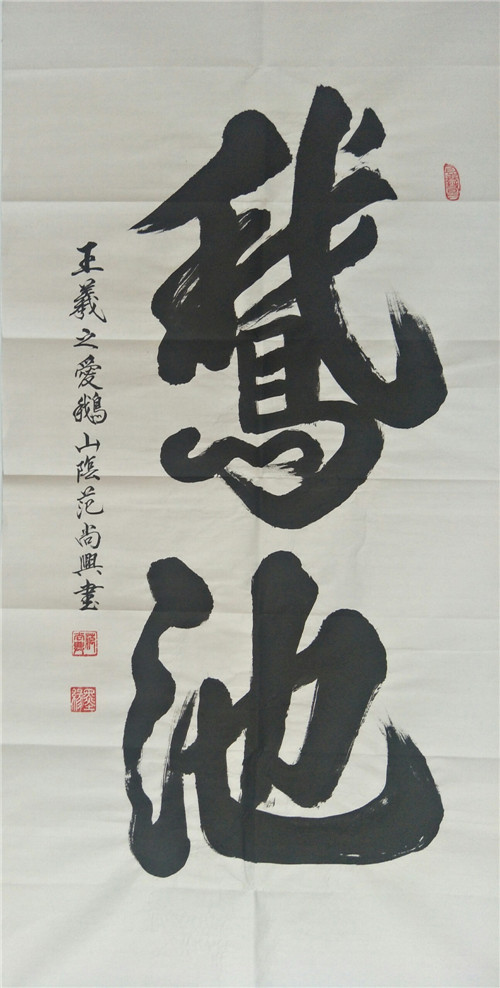 鵞池
王羲之愛鵝山陰范尚興書